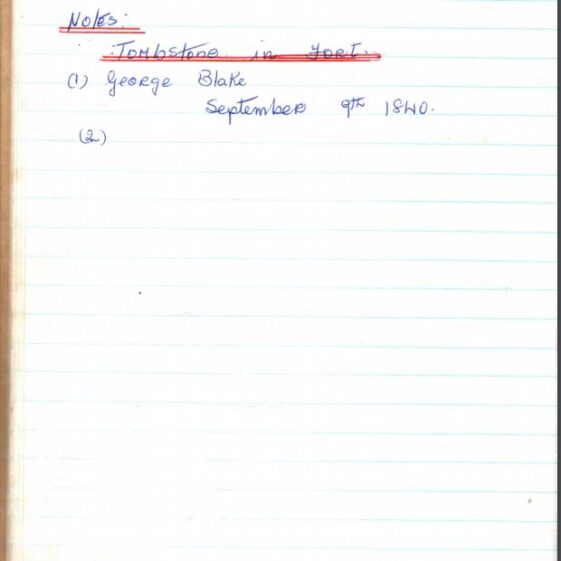 Notes:
Tombstone in Fort.
(1) George Blake
September 9th 1840.
(2)